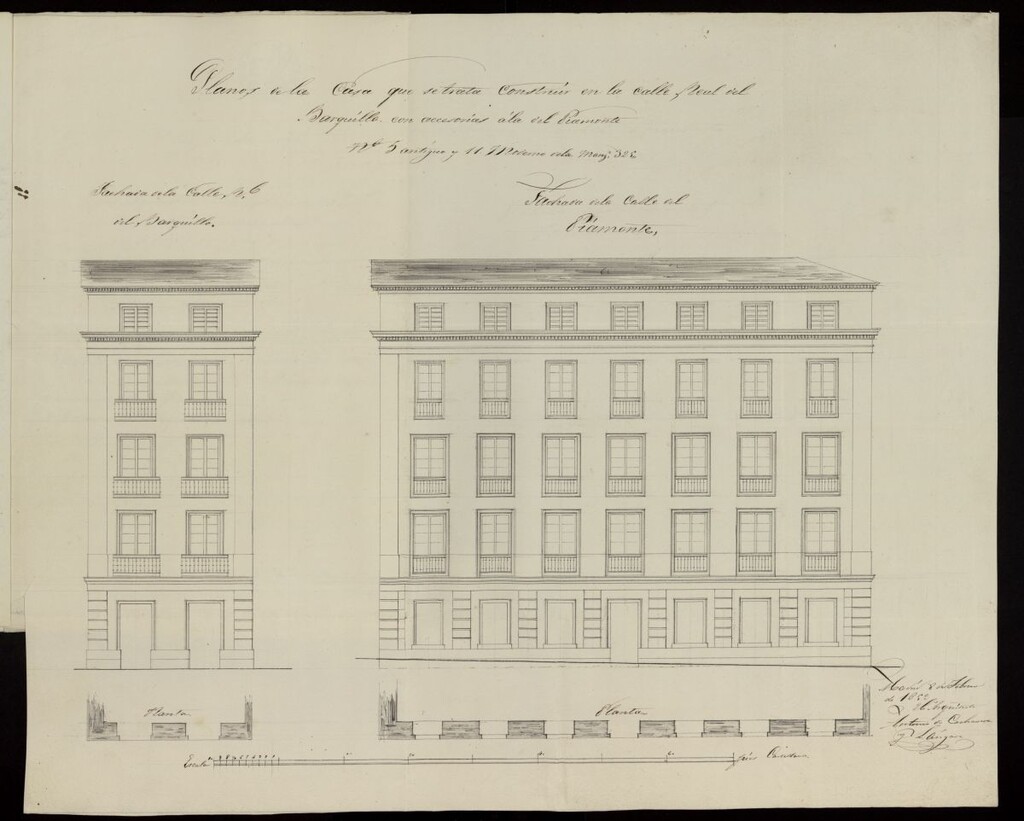 Planos de la Casa que se trata Construir en la calle Real del
Barquillo con accesorias á la del Piamonte
Nº 5 antiguo y 11 Moderno de la Manz. 326
Fachada de la Calle R.
del Barquillo.
Fachada de la Calle del
Piamonte,
Madrid 8 de
de 1852
El Arquitecto
Antonio de
Planta
Planta
Escala
pies Castellanos